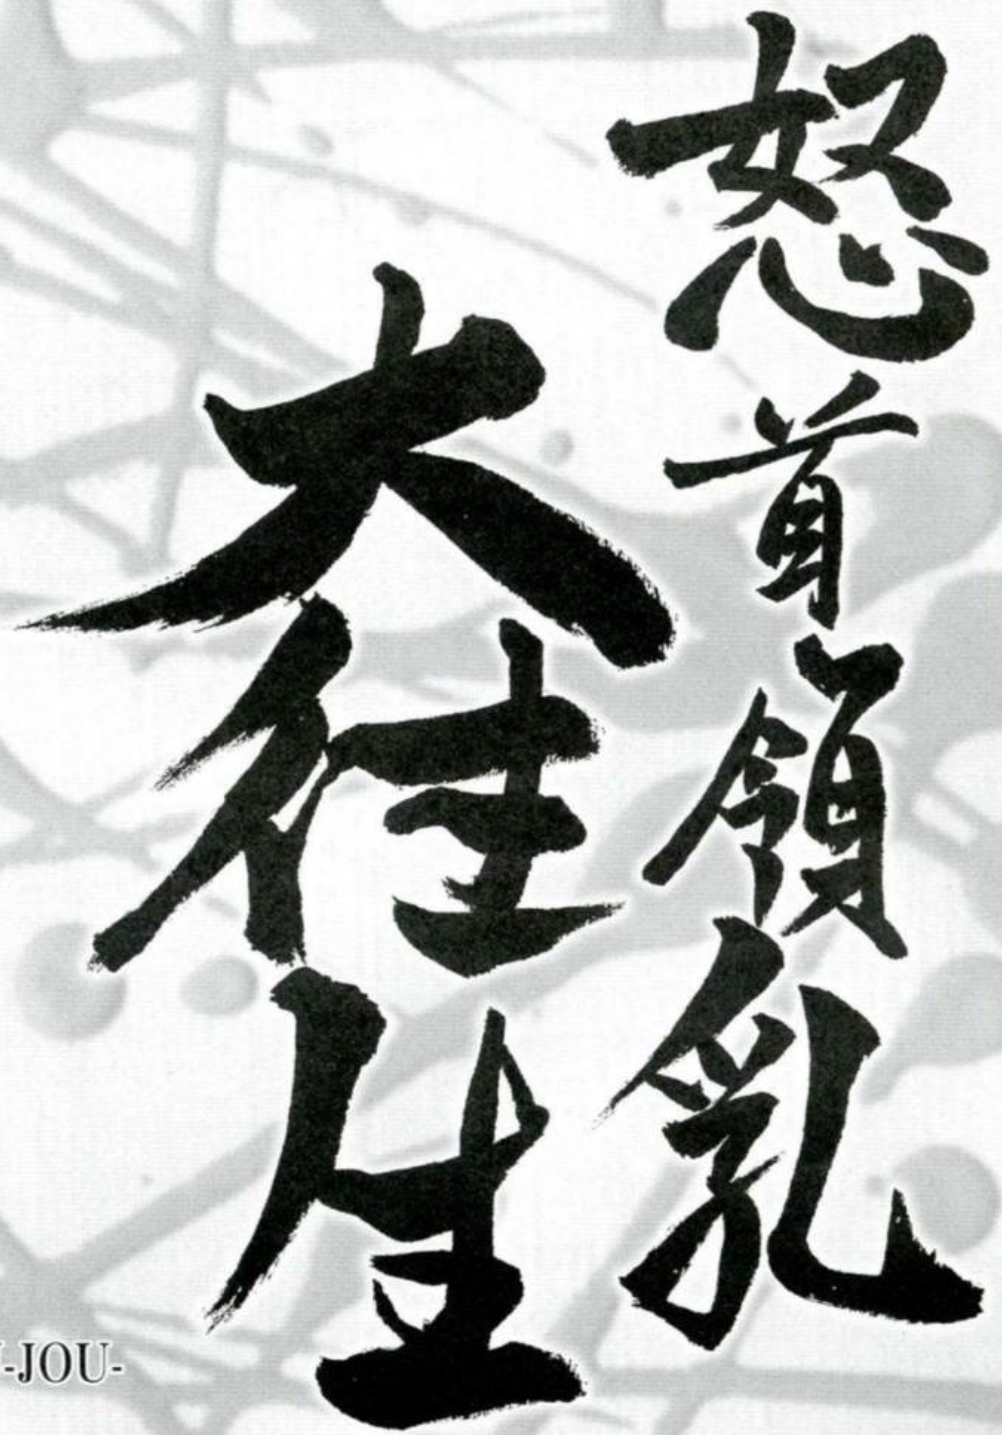 怒首領乳
大往生
-JOU-